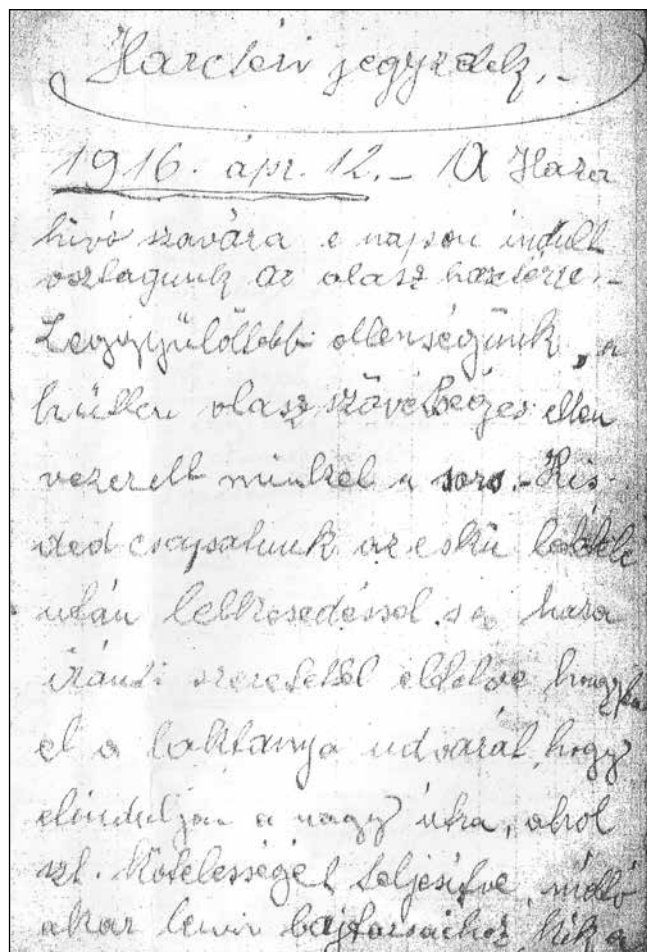 Harctéri jegyzetek.-
1916. ápr. 12.- A Haza
hívó szavára e napon indult
osztagunk az olasz harctérre.-
Leggyülöltebb ellenségünk, a
hűtlen olasz szövetséges ellen
vezerelt minket a sors.- Kis-
ded csapatunk az eskü letétele
után lelkesedéssel s a haza
iránti szeretettel eltelve hagyta
el a laktanya udvarát, hogy
elinduljon a nagy útra, ahol
szt. kötelességét teljesítve, méltó
akar lenni bajtársaihoz kik a